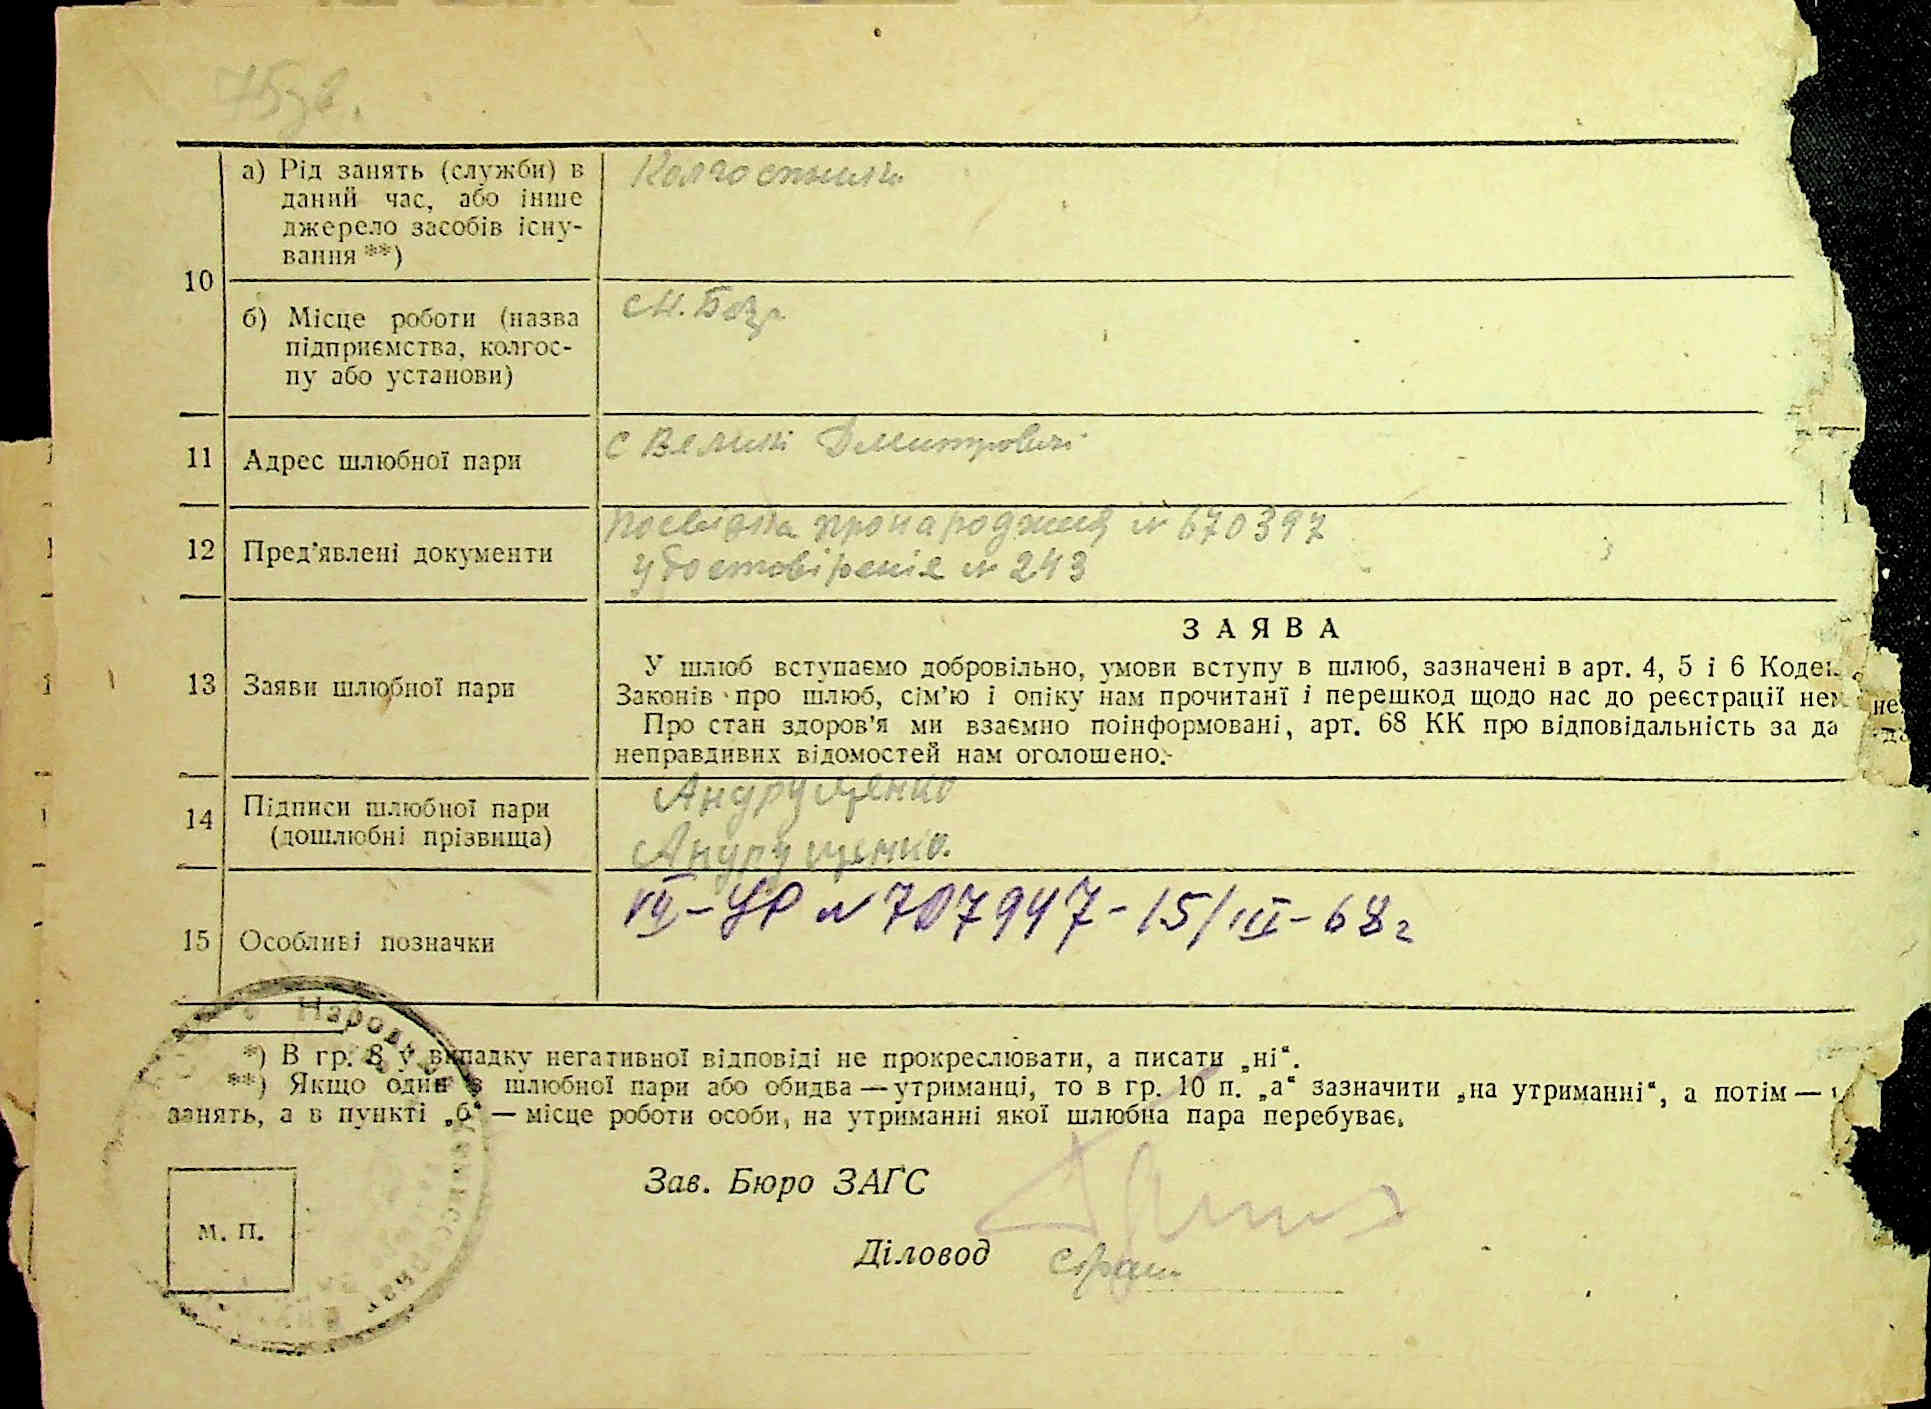 10
а) Рід занять (служби) в
даний час, або інше
джерело засобів існу-
вання **)
Колгоспник
б) Місце роботи (назва
підприємства, колгос-
пу або установи)
11 Адрес шлюбної пари
с Великі Дмитровичі
12 Пред'явлені документи
№ 670397
№ 243
13 Заяви шлюбної пари
ЗАЯВА
У шлюб вступаємо добровільно, умови вступу в шлюб, зазначені в арт. 4, 5 і 6
Законів про шлюб, сім'ю і опіку нам прочитані і перешкод щодо нас до реєстрації
Про стан здоров'я ми взаємно поінформовані, арт. 68 КК про відповідальність за да
неправдивих відомостей нам оголошено.
14 Підписи шлюбної пари
(дошлюбні прізвища)
Андрущенко
Андрущенко.
15 Особливі позначки
УР № 707947 - 15/III - 68 г
*) В гр. 8 у випадку негативної відповіді не прокреслювати, а писати „ні“.
**) Якщо один з шлюбної пари або обидва — утриманці, то в гр. 10 п. „а“ зазначити „на утриманні“, а потім —
занять, а в пункті „б“ — місце роботи особи, на утриманні якої шлюбна пара перебуває.
Зав. Бюро ЗАГС
М. П.
Діловод